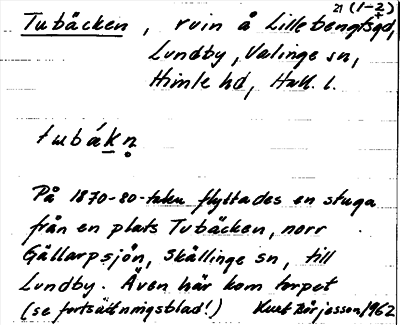 21 (1-2)
Tubäcken, ruin å Lillebengtsgd,
Lundby, Valinge sn,
Himle hd, Hall. l.
tubákn̥
På 1870-80-talen flyttades en stuga
från en plats Tubäcken, norr
Gällarpsjön, Skällinge sn, till
Lundby. Även här kom torpet
(se fortsättningsblad!) Kurt Börjesson 1962